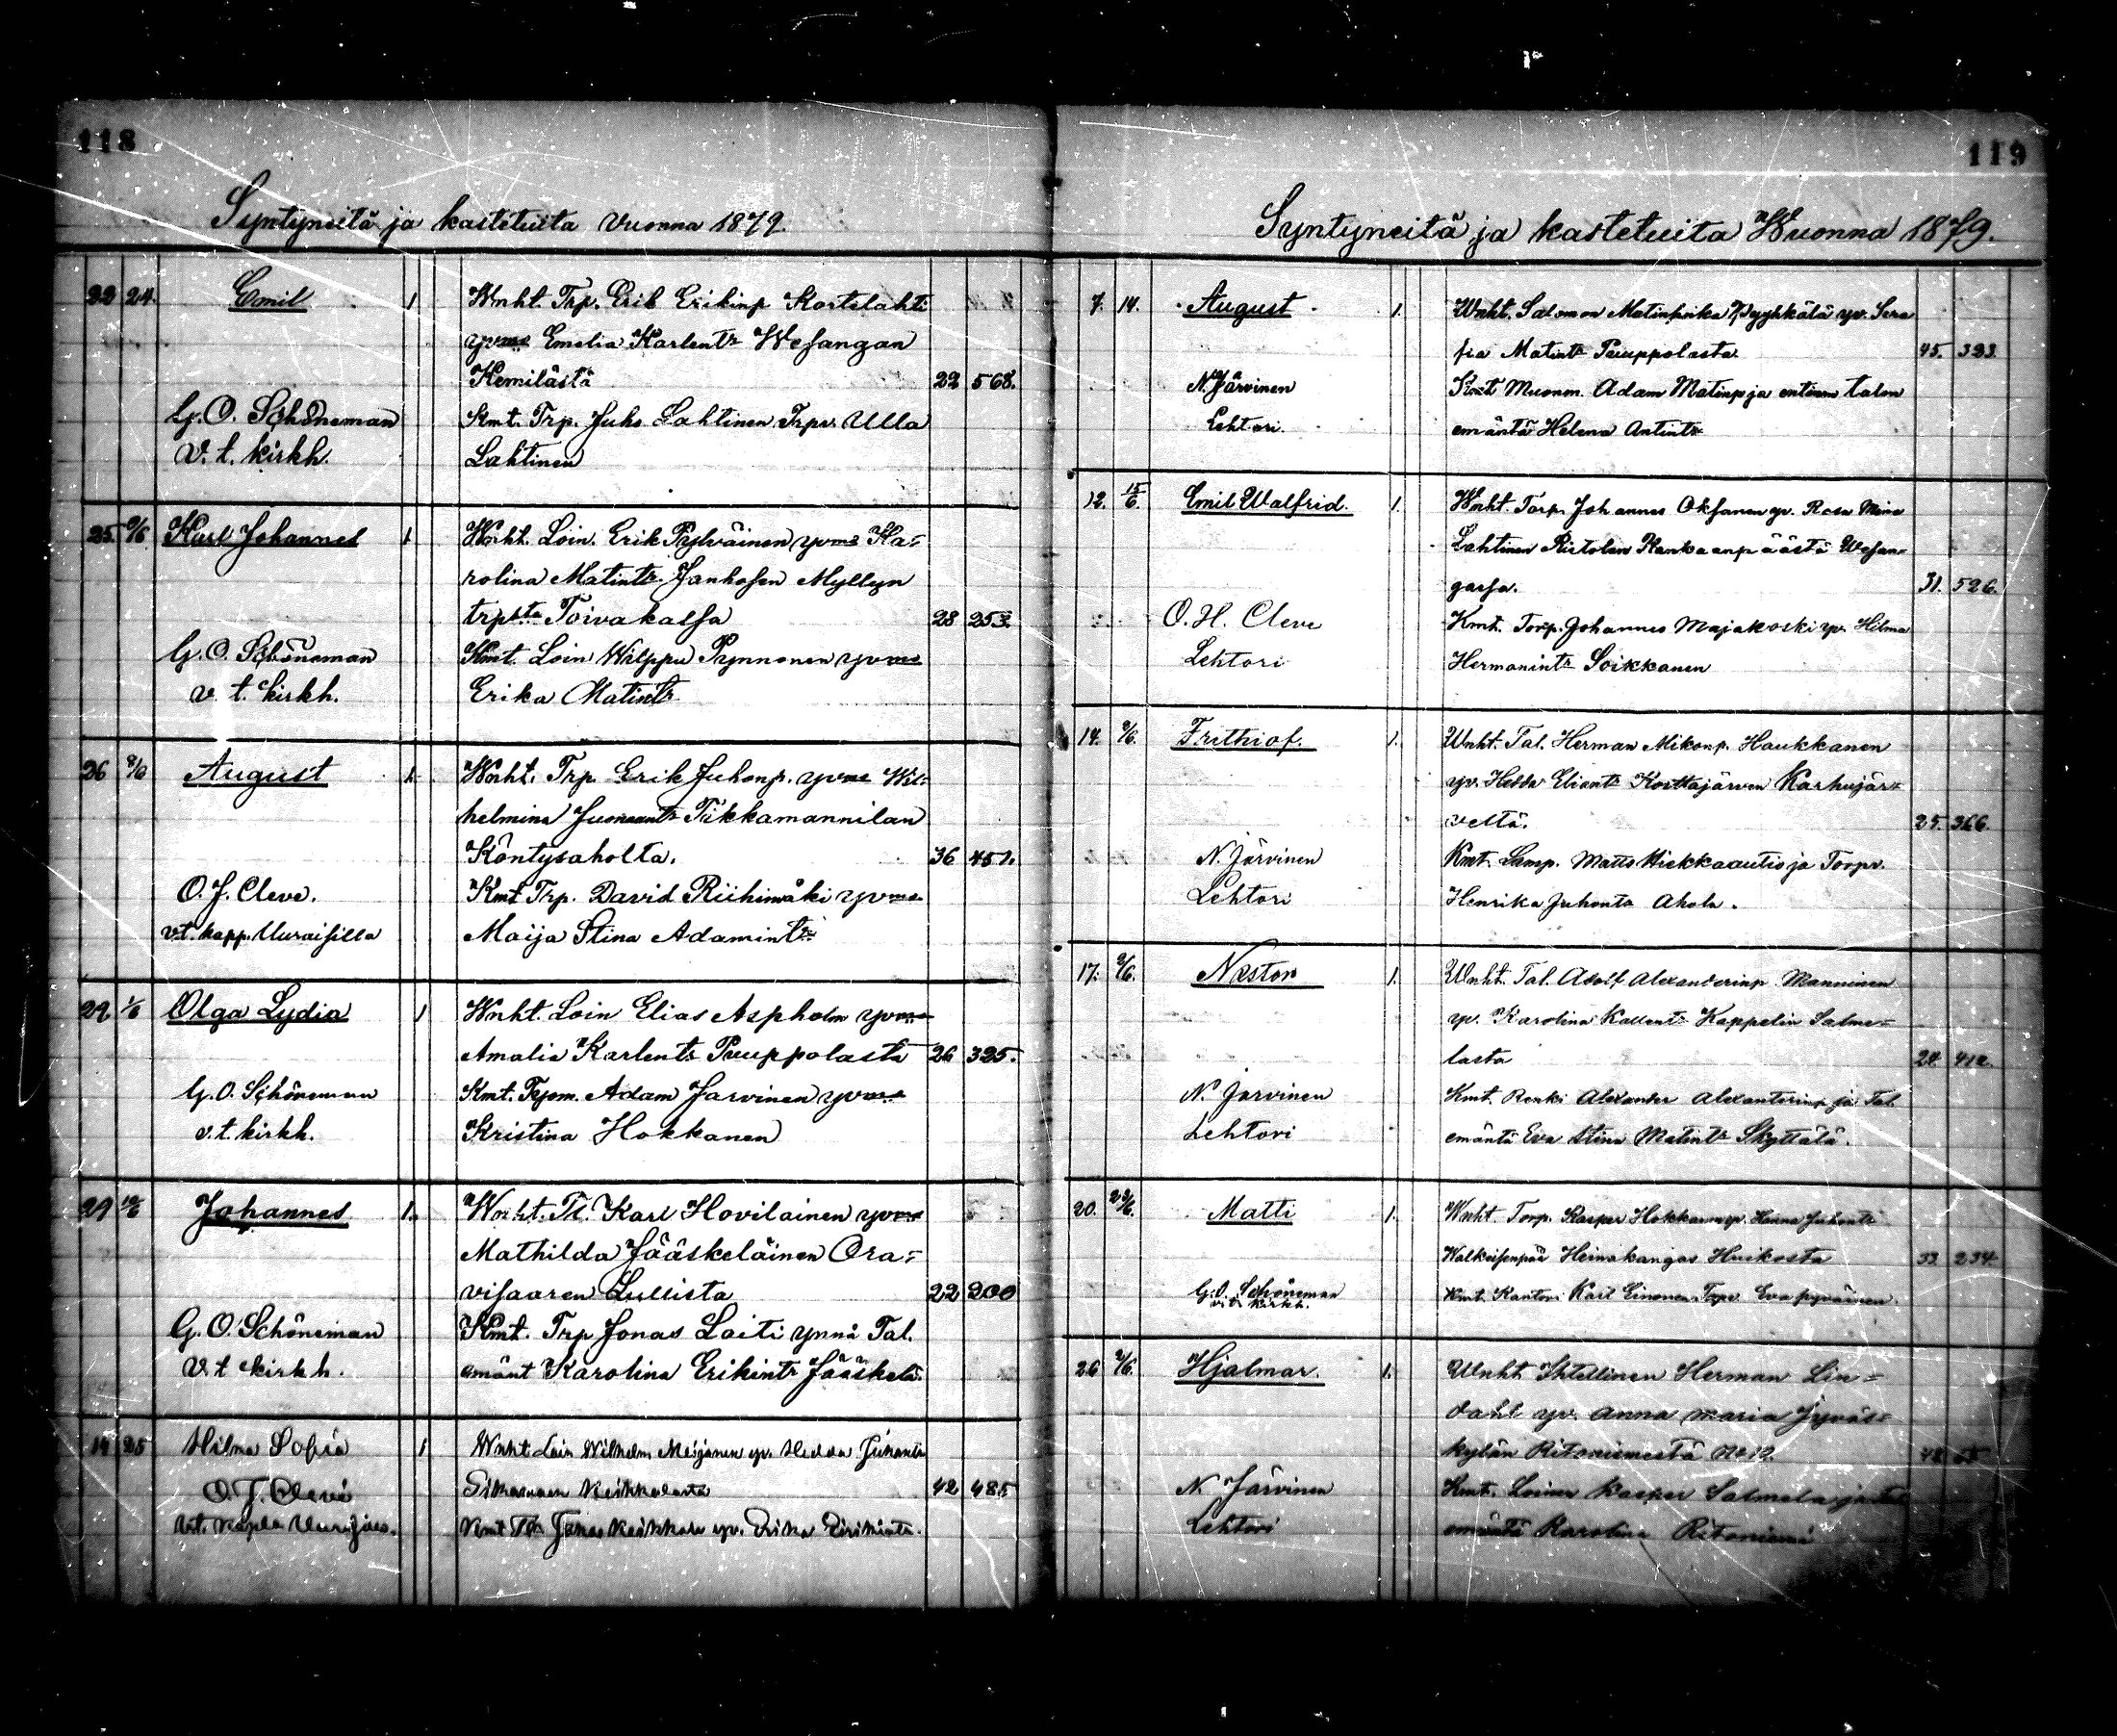 118
Syntyneitä ja kastetuita vuonna 1879.
22 24. Emil 1 Wnht. Trp. Erik Erikinp Kortelahti
yvme Emelia Karlentr Wesangan
Kemilästä 22 568.
G. O. Schöneman Kmt. Trp. Juho Lahtinen Trpv. Ulla
V. t. kirkh. Lahtinen
25 2/6 Karl Johannes 1 Wnht. Loin. Erik Pylväinen yvme Ka=
rolina Matintr. Janhosen Myllyn
trpsta Toivakassa 28 253.
G. O. Schöneman Kmt. Loin Wilppu Pynnonen yvme
v. t. kirkh. Erika Matintr
26 8/6 August 1. Wnht. Trp. Erik Juhonp. yvme Wil=
helmina Tikkamannilan
Köntysaholta. 36 451.
O. J. Cleve. Kmt Trp. David Riihimäki yvme
vt. kapp. Uuraisilla Maija Stina Adamintr
29 1/6 Olga Lydia 1 Wnht. Loin Elias Aspholm yvme
Amalia Karlentr Puuppolasta 26 325.
G. O. Schöneman Kmt. Adam Jarvinen yvme
v. t. kirkh. Kristina Hokkanen
29 Johannes 1. Wnht. Tl. Karl Hovilainen yvme
Mathilda Jääskeläinen Ora=
visaaren Lullista 22 200
G. O. Schöneman Kmt. Trp Jonas Laiti ynnä Tal.
V. t kirkh. emänt Karolina Erikintr Jääskelä.
14 25 Hilma Sofia 1 Wnht Loin Wilhelm yv. Hedda
O. J. Cleve 42 485
vt. yv. Erika
119
Syntyneitä ja kastetuita Wuonna 1879.
7. 14. August 1. Wnht. Salomon Pyyhkälä yv. Sera
fia Matintr Puuppolasta. 45. 323
N. Järvinen Kmt Muonm. Adam Matinp ja entinen talon
Lehtori. emäntä Helena Antintr
12. 15/6. Emil Walfrid. 1. Wnht. Torp. Johannes Oksanen yv. Rosa Mina
Lahtinen Ristolan Kankaanpäästä Wesan=
gassa. 31. 526.
O. H. Cleve Kmt. Torp. Johannes Majakoski yv. Hilma
Lehtori Hermanintr Soikkanen
14. Frithiof. 1. Wnht. Tal. Herman Mikonp. Haukkanen
yv. Hedda Eliantr Korttajärven Karhujär=
veltä. 25. 366.
N. Järvinen Kmt. Matts Hiekkaautio ja Torpv.
Lehtori Henrika Juhontr Ahola.
17. Nestor 1. Wnht. Tal. Adolf Alexanderinp Manninen
yv. Karolina Kallentr Kappelin Salme=
lasta 24. 412.
N. Jarvinen Kmt. Renki Alexander Alexanterinp ja Tal.
Lehtori emäntä Eva Stina Matintr Skyttälä.
20. Matti 1. Wnht. Torp. Kasper Hokkanen yv. Hanna Juhontr
Heinakangas Huikosta 33. 234
G. O. Schöneman Kmt. Kantori Karl Einonen Torpv. Eva
v. t. kirkh.
26 Hjalmar. 1. Wnht. Itsellinen Herman Lin=
dahl yv. Anna Maria Jyväs=
kylän Ritoniemestä No 12. 42
N. Järvinen Kmt. Loinen Kasper Salmela ja Tal
Lehtori emäntä Karolina Ritoniemi